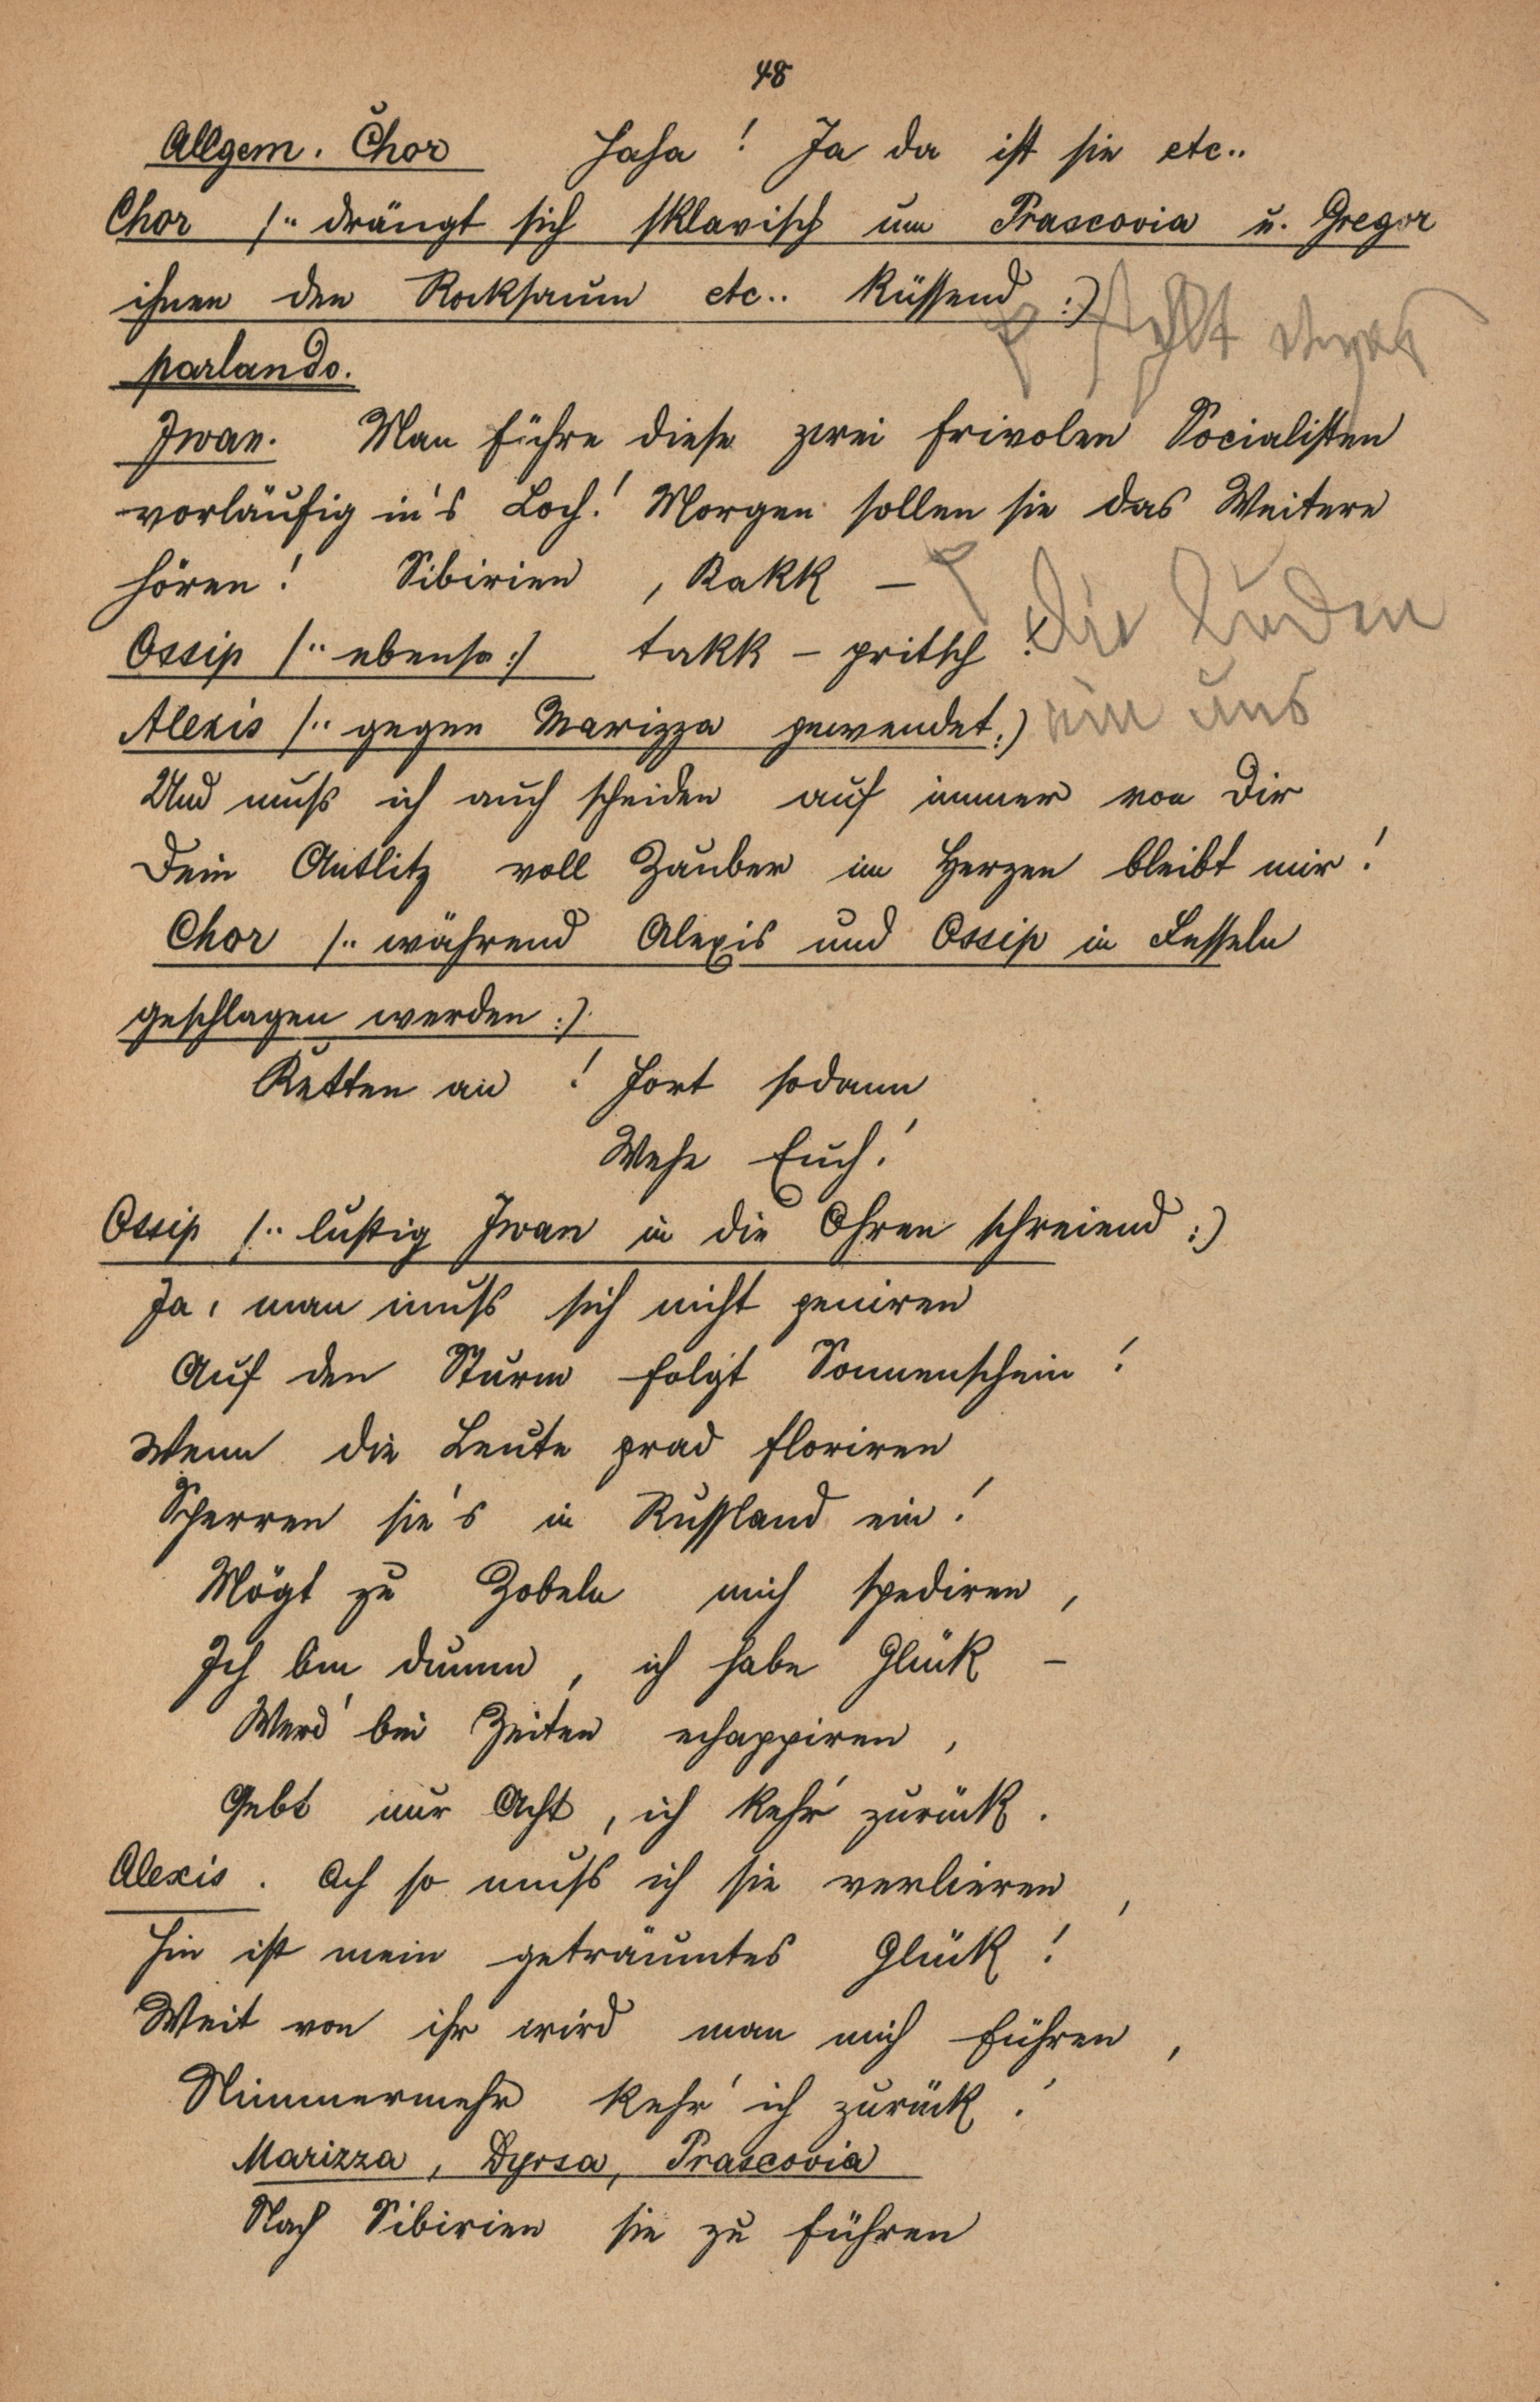 48
Allgem. Chor Haha! Ja da ist sie etc..
Chor /.. drängt sich sklavisch um Prascovia u. Gregor
ihnen den Rocksaum etc.. küssend :)
fehlt etwas
parlando.
Iwan. Man führe diese zwei frivolen Socialisten
vorläufig in's Loch! Morgen sollen sie das Weitere
hören! Sibirien, Kakk –
Ossip /.. ebenso :/ takk – pritsch!
die luden
ein uns
Alexis /.. gegen Marizza gewendet :)
Und muß ich auch scheiden auf immer von Dir
Dein Antlitz voll Zauber im Herzen bleibt mir!
Chor /.. während Alexis und Ossip in Fesseln
geschlagen werden :).
Ketten an! Fort sodann
Wehe Euch!
Ossip /.. lustig Iwan in die Ohren schreiend :)
Ja, man muß sich nicht geniren
Auf den Sturm folgt Sonnenschein!
Wenn die Leute grad floriren
Sperren sie's in Russland ein!
Mögt zu Zobeln mich spediren,
Ich bin dumm, ich habe Glück –
Werd' bei Zeiten echappiren,
Gebt nur Acht, ich kehr' zurück.
Alexis. Ach so muß ich sie verlieren,
Hin ist mein geträumtes Glück!
Weit von ihr wird man mich führen,
Nimmermehr kehr' ich zurück!
Marizza, Dyrsa, Prascovia
Nach Sibirien sie zu führen